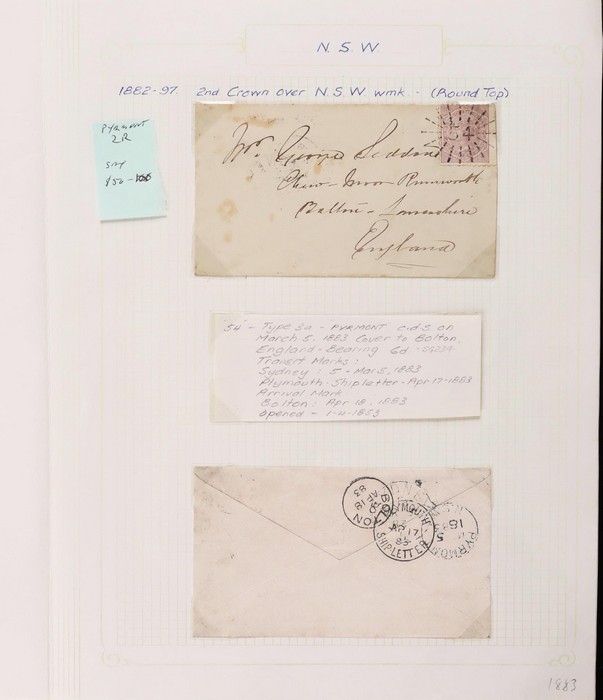 N.S.W
1882-97 2nd Crown over N.S.W. wmk. - (Round Top)
PYRMONT
2R
SAY
$50-
54
Mr. George Seddon
Moor Rumworth
Bolton - Lancashire
England
"54" - Type 5a - PYRMONT c.d.s on
March 5, 1883 Cover to Bolton,
England - Bearing 6d - SG234.
Transit Marks:
Sydney : 5 - Mar 5, 1883
Plymouth - Ship letter - Apr 17-1883
Arrival Mark
Bolton : Apr 18, 1883
Opened - 1-4-1853
BOLTON
AP 18
83
PLYMOUTH
AP 17
83
SHIP LETTER
PYRMONT
1883